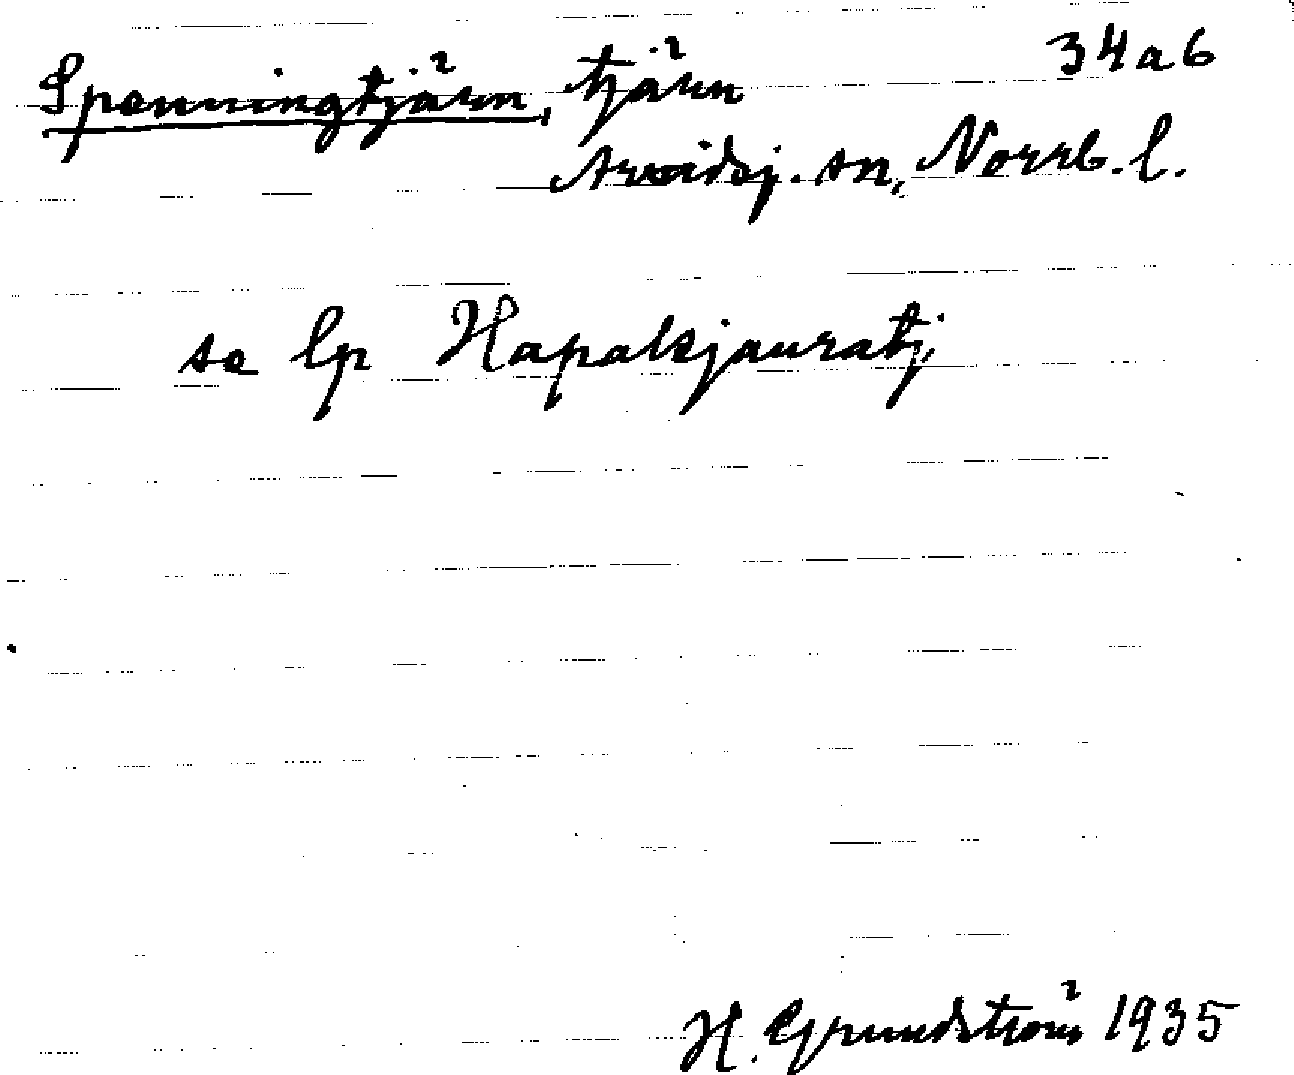 Spenningtjärn, tjärn 34a6
Arvidsj. sn, Norrb. l.
se lp Hapakjauratj
H. Grundström 1935